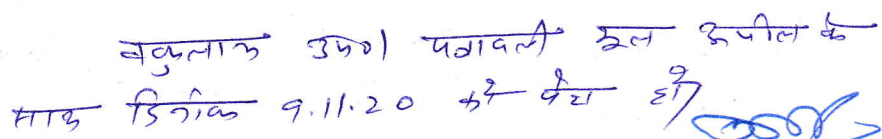 वकुलाल उप०। पत्रावली मूल अपील के
साथ दिनांक 9.11.20 को पेश हो